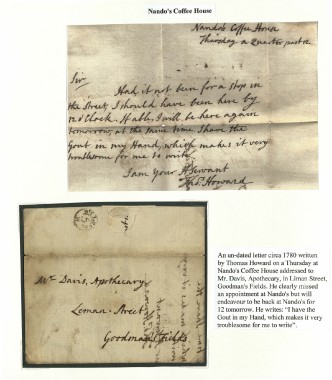 Nando's Coffee House
Nando's Coffee House
Thursday a Quarter past 12
Sir
Had it not been for a stop in
the Street, I should have been here by
12 o'Clock. I will be here again
tomorrow, at the same time I have the
Gout in my Hand, which makes it very
troublesome for me to write
I am your Servant
Thos. Howard
Mr. Davis, Apothecary
Leman-Street
Goodman's Fields
An un-dated letter circa 1780 written
by Thomas Howard on a Thursday at
Nando's Coffee House addressed to
Mr. Davis, Apothecary, in Liman Street,
Goodman's Fields. He clearly missed
an appointment at Nando's but will
endeavour to be back at Nando's for
12 tomorrow. He writes: "I have the
Gout in my Hand, which makes it very
troublesome for me to write".